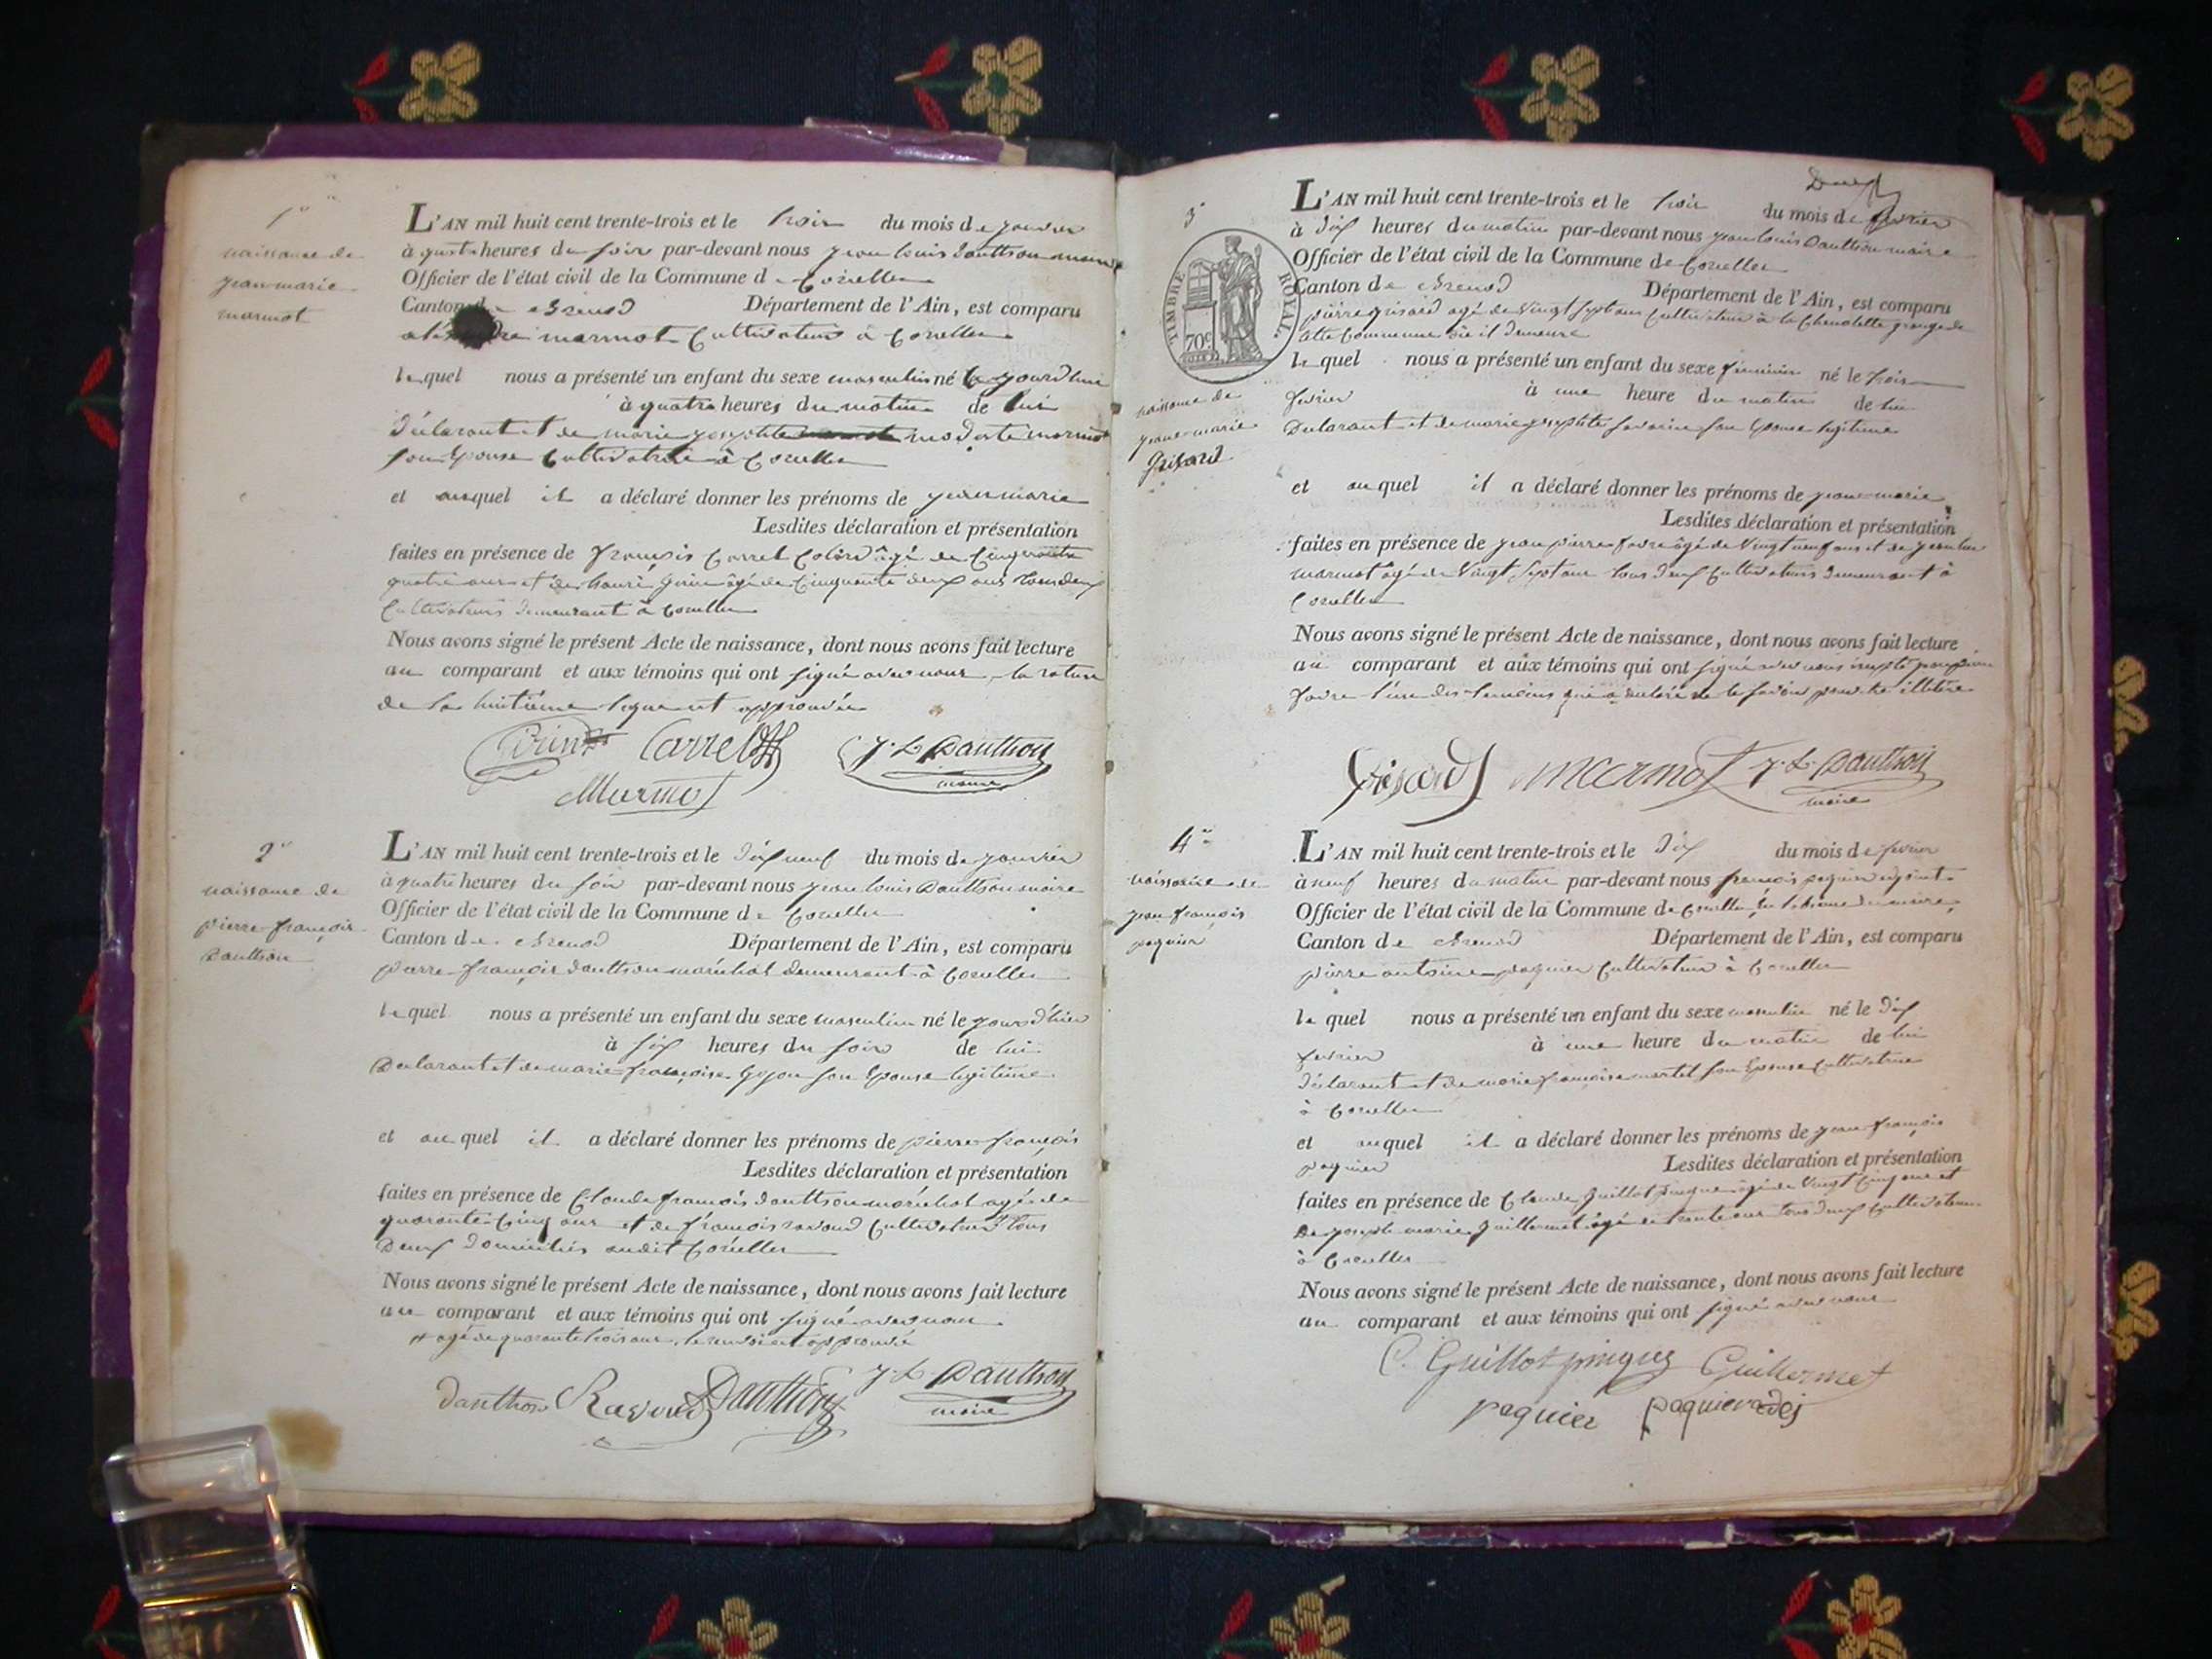 1er
naissance de
jean marie
marmot
L'AN mil huit cent trente-trois et le trois du mois de janvier
à quatre heures du soir par-devant nous jean louis Dauthon maire
Officier de l'état civil de la Commune de Corcelles
Canton de Brenod Département de l'Ain, est comparu
marmot Cultivateur à Corcelles
lequel nous a présenté un enfant du sexe masculin né le jourd'hui
à quatre heures du matin de lui
Déclarant et de marie josephte modeste marmot
son Epouse Cultivatrice à Corcelles
et auquel il a déclaré donner les prénoms de jean marie
Lesdites déclaration et présentation
faites en présence de françois Carrel Colird âgé de Cinquante
quatre ans et de âgé de Cinquante deux ans tous deux
Cultivateurs demeurant à Corcelles
Nous avons signé le présent Acte de naissance, dont nous avons fait lecture
au comparant et aux témoins qui ont signé avec nous, la rature
de la huitième ligne est approuvée
Carrel J. L. Dauthon
maire
Marmot
2e
naissance de
pierre françois
Dauthon
L'AN mil huit cent trente-trois et le dix neuf du mois de janvier
à quatre heures du soir par-devant nous jean louis Dauthon maire
Officier de l'état civil de la Commune de Corcelles
Canton de Brenod Département de l'Ain, est comparu
pierre françois Dauthon maréchal demeurant à Corcelles
lequel nous a présenté un enfant du sexe masculin né le jour d'hier
à six heures du soir de lui
Déclarant et de marie françoise Gojon son Epouse légitime
et auquel il a déclaré donner les prénoms de pierre françois
Lesdites déclaration et présentation
faites en présence de Claude françois Dauthon maréchal agé de
quarante Cinq ans et de françois ravoud Cultivateur # tous
Deux domiciliés audit Corcelles
Nous avons signé le présent Acte de naissance, dont nous avons fait lecture
au comparant et aux témoins qui ont signé avec nous
# agé de quarante trois ans, le renvoi est approuvé
Dauthon Ravoud Dauthon J. L. Dauthon
maire
Deux
3e
TIMBRE ROYAL
70c
naissance de
jeane-marie
Grisard
L'AN mil huit cent trente-trois et le trois du mois de fevrier
à dix heures du matin par-devant nous jean louis Dauthon maire
Officier de l'état civil de la Commune de Corcelles
Canton de Brenod Département de l'Ain, est comparu
pierre grisard agé de Vingt sept ans Cultivateur à la grange de
cette Commune où il demeure
lequel nous a présenté un enfant du sexe féminin né le trois
fevrier à une heure du matin de lui
Déclarant et de marie josephte son Epouse légitime
et auquel il a déclaré donner les prénoms de jeane-marie
Lesdites déclaration et présentation
faites en présence de jean pierre favre âgé de Vingt neuf ans et de jean luc
marmot âgé de Vingt Sept ans tous deux Cultivateurs demeurant à
Corcelles
Nous avons signé le présent Acte de naissance, dont nous avons fait lecture
au comparant et aux témoins qui ont signé avec nous excepté jean pierre
favre l'un des témoins qui a déclaré ne le savoir pour être illitéré
Grisard Marmot J. L. Dauthon
maire
4e
naissance de
jean françois
paquier
L'AN mil huit cent trente-trois et le dix du mois de fevrier
à neuf heures du matin par-devant nous françois paquier adjoint
Officier de l'état civil de la Commune de Corcelles, en l'absence du maire,
Canton de Brenod Département de l'Ain, est comparu
pierre antoine paquier Cultivateur à Corcelles
lequel nous a présenté un enfant du sexe masculin né le dix
fevrier à une heure du matin de lui
Déclarant et de marie françoise martel son Epouse Cultivatrice
à Corcelles
et auquel il a déclaré donner les prénoms de jean françois
paquier Lesdites déclaration et présentation
faites en présence de Claude Guillot pingue âgé de Vingt Cinq ans et
de joseph marie Guillermet âgé de trente ans tous deux Cultivateurs
à Corcelles
Nous avons signé le présent Acte de naissance, dont nous avons fait lecture
au comparant et aux témoins qui ont signé avec nous
C. Guillot pingue Guillermet
paquier paquier adj